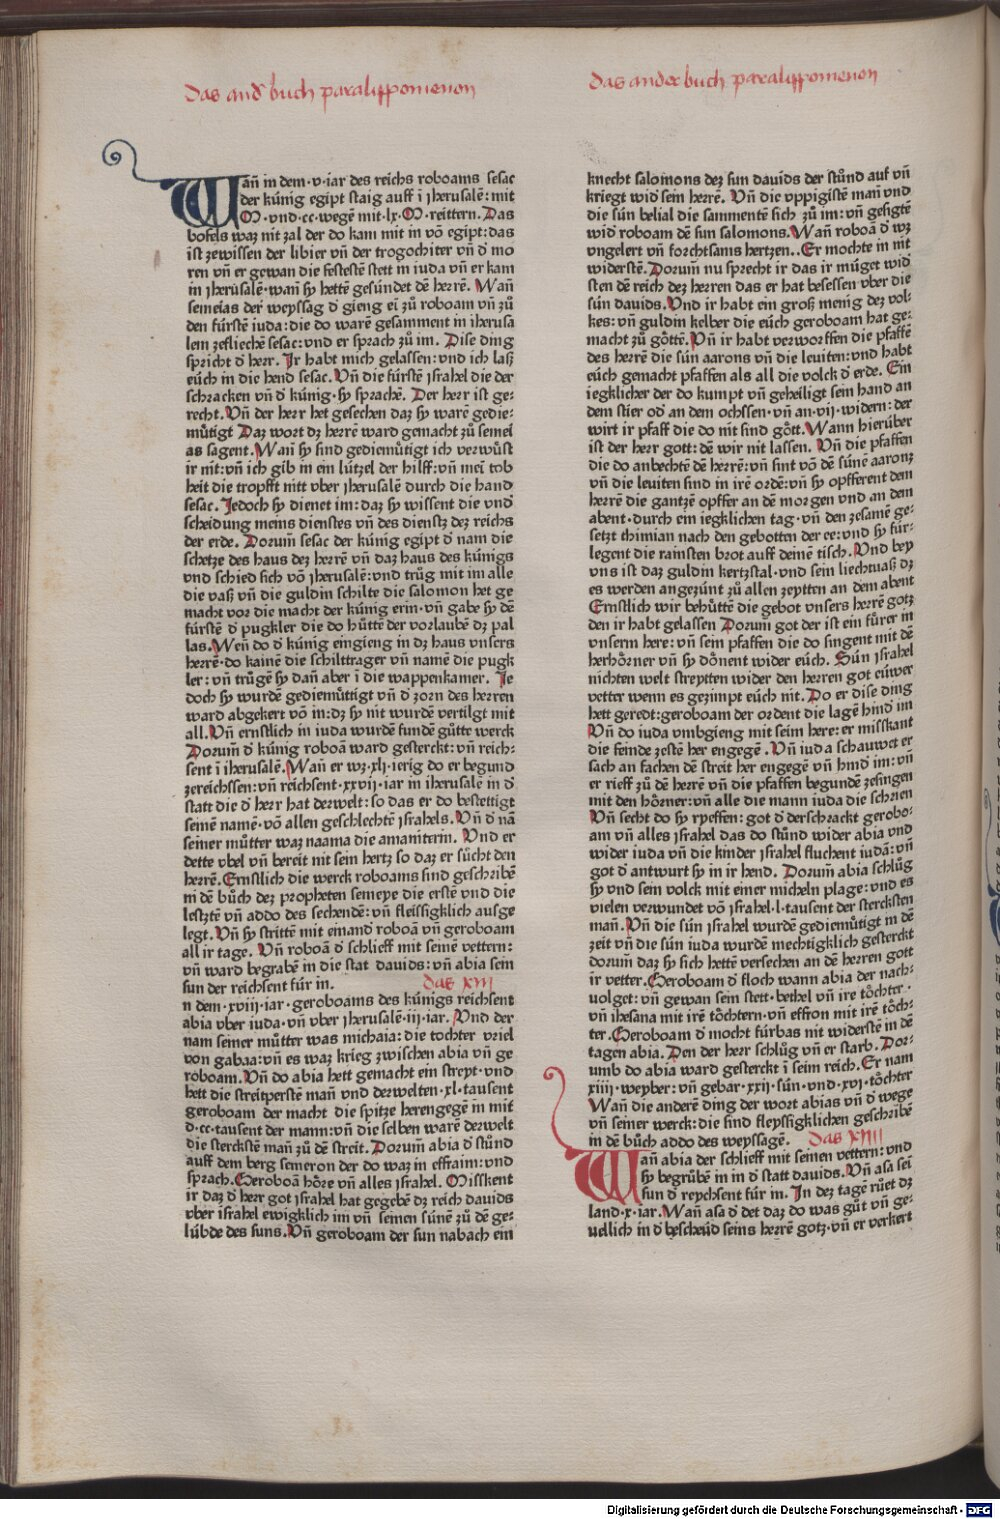 das and̛ buch paralippomenon
das ander buch paralippomenon
Wañ in dem·v·iar des reichs roboams sesac
der kúnig egipt staig auff ī jherusalē: mit
M·vnd·cc·wegē mit·lx·M·reittern. Das
bofels waz nit zal der do kam mit in vō egipt: das
ist zewissen der libier vñ der trogochiter vñ d̛ mo
ren vñ er gewan die festestē stett in iuda vñ er kam
in jherusalē·wañ sy hettē gesúndet dē herrē. Wañ
semeias der weyssag d̛ gieng eī zů roboam vñ zů
den fúrstē iuda: die do warē gesamment in iherusa
lem zeflichē sesac: vnd er sprach zů im. Dise ding
spricht d̛ herr. Ir habt mich gelassen: vnd ich laß
eúch in die hend sesac. Vñ die fúrstē jsrahel die der
schracken vñ d̛ kúnig·sy sprachē. Der herr ist ge-
recht. Vñ der herr het gesechen daz sy warē gedie-
mútigt Daz wort dz herrē ward gemacht zů semei
as sagent. Wañ sy sind gediemútigt ich verwúst
ir nit: vñ ich gib in ein lútzel der hilff: vñ mei tob
heit die tropfft nitt vber jherusalē durch die hand
sesac. Jedoch sy dienet im: daz sy wissent die vnd̛
scheidung meins dienstes vñ des dienstz dez reichs
der erde. Dorum̄ sesac der kúnig egipt d̛ nam die
schetze des haus dez herrē vñ daz haus des kúnigs
vnd schied sich vō jherusalē: vnd trůg mit im alle
die vaß vñ die guldin schilte die salomon het ge
macht vor die macht der kúnig erin·vñ gabe sy dē
fúrstē d̛ pugkler die do húttē der vorlaubē dz pal
las. Weñ do d̛ kúnig eingieng in dz haus vnsers
herrē·do kainē die schilttrager vñ namē die pugk
ler: vñ trůgē sy dañ aber ī die wappenkamer. Je
doch sy wurdē gediemúttigt vñ d̛ zorn des herren
ward abgekert vō in: dz sy nit wurdē vertilgt mit
all. Vñ ernstlich in iuda wurdē fundē gútte werck
Dorum̄ d̛ kúnig roboā ward gesterckt: vñ reich-
sent ī iherusalē. Wañ er wz·xlj·ierig do er begund
zereichssen: vñ reichsent·xxvij·iar in iherusalē in d̛
statt die d̛ herr hat derwelt: so das er do bestettigt
seinē namē·vō allen geschlechtē jsrahels. Vñ d̛ nā
seiner můtter waz naama die amaniterin. Vnd er
dette vbel vñ bereit nit sein hertz so daz er sůcht den
herrē. Ernstlich die werck roboams sind geschribē
in dē bůch dez propheten semeye die erstē vnd die
lesztē vñ addo des sechendē: vñ fleissigklich aufge
legt. Vñ sy strittē mit einand̛ roboā vñ geroboam
all ir tage. Vñ roboā d̛ schlieff mit seinē vettern:
vñ ward begrabē in die stat dauids: vñ abia sein
sun der reichsent fúr in. das XIII
n dem·xviij·iar·geroboams des kúnigs reichsent
abia vber iuda·vñ vber jherusalē·iij·iar. Vnd der
nam seiner můtter was michaia: die tochter vriel
von gabaa: vñ es waz krieg zwischen abia vñ ge
roboam. Vñ do abia hett gemacht ein streyt·vnd
hett die streitperstē mañ vnd derwelten·xl·tausent
geroboam der macht die spitze herengegē in mit
d·cc·tausent der mann: vñ die selben warē derwelt
die sterckstē mañ zů dē streit. Dorum̄ abia d̛ stůnd
auff dem berg semeron der do waz in effraim: vnd
sprach. Geroboā hóre vñ alles jsrahel. Misskent
ir daz d̛ herr got jsrahel hat gegebē dz reich dauids
vber jsrahel ewigklich im vñ seinen súnē zů dē ge-
lúbde des suns. Vñ geroboam der sun nabach ein
knecht salomons dez sun dauids der stůnd auf vñ
kriegt wid̛ sein herrē. Vñ die vppigistē mañ vnd
die sún belial die sammentē sich zů im: vñ gesigtē
wid̛ roboam dē sun salomons. Wañ roboā d̛ wz
vngelert vñ forchtsams hertzen.. Er mochte in nit
widerstē. Dorum̄ nu sprecht ir das ir múget wid̛
sten dē reich dez herren das er hat besessen vber die
sún dauids. Vnd ir habt ein groß menig dez vol-
kes: vñ guldin kelber die eúch geroboam hat ge-
macht zů góttē. Vñ ir habt verworffen die pfaffē
des herrē die sún aarons vñ die leuiten: vnd habt
eúch gemacht pfaffen als all die volck d̛ erde. Ein
iegklicher der do kumpt vñ geheiligt sein hand an
dem stier od̛ an dem ochssen·vñ an·vij·widern: der
wirt ir pfaff die do nit sind gótt. Wann hierúber
ist der herr gott: dē wir nit lassen. Vñ die pfaffen
die do anbechtē dē herrē: vñ sint vō dē súnē aaronz
vñ die leuiten sind in irē ordē: vñ sy opfferent dem
herrē die gantzē opffer an dē morgen vnd an dem
abent·durch ein iegklichen tag·vñ den zesamē ge-
setzt thimian nach den gebotten der ee: vnd sy fúr-
legent die rainsten brot auff deinē tisch. Vnd bey
vns ist daz guldin kertzstal·vnd sein liechtuaß dz
es werden angezúnt zů allen zeytten an dem abent
Ernstlich wir behúttē die gebot vnsers herrē gotz
den ir habt gelassen Dorum got der ist ein fúrer in
vnserm here: vñ sein pfaffen die do singent mit dē
herhórner vñ sy dónent wider eúch. Sún jsrahel
nichten welt streytten wider den herren got eúwer
vetter wenn es gezimpt eúch nit. Do er dise ding
hett geredt: geroboam der ordent die lagē hind̛ im
Vñ do iuda vmbgieng mit seim here: er misskant
die feinde zestē her engegē. Vñ iuda schauwet er
sach an fachen dē streit her engegē vñ hind̛ im: vñ
er rieff zů dē herrē vñ die pfaffen begundē zesingen
mit den hórner: vñ alle die mann iuda die schrien
Vñ secht do sy ryeffen: got d̛ derschrackt gerobo-
am vñ alles jsrahel das do stůnd wider abia vnd
wider iuda vñ die kinder jsrahel fluchent iudā: vñ
got d̛ antwurt sy in ir hend. Dorum̄ abia schlůg
sy vnd sein volck mit einer micheln plage: vnd es
vielen verwundet vō jsrahel·l·tausent der stercksten
mañ. Vñ die sún jsrahel wurdē gediemútigt in dē
zeit vñ die sún iuda wurdē mechtigklich gesterckt
dorum̄ daz sy sich hettē versechen an dē herren gott
ir vetter. Geroboam d̛ floch wann abia der nach-
uolget: vñ gewan sein stett·bethel vñ ire tóchter·
vñ ihesana mit irē tóchtern·vñ effron mit irē tóch-
ter. Geroboam d̛ mocht fúrbas nit widerstē in dē
tagen abia. Den der herr schlůg vñ er starb. Dor-
umb do abia ward gesterckt ī seim reich. Er nam
xiiij·weyber: vñ gebar·xxij·sún·vnd·xvj·tóchter
Wañ die anderē ding der wort abias vñ d̛ wege
vñ seiner werck: die sind fleyssigklichen geschribē
in dē bůch addo des weyssagē. das XIIII
Wañ abia der schlieff mit seinen vettern: vnd
sy begrůbē in in d̛ statt dauids. Vñ asa sei
sun d̛ reychsent fúr in. In dez tagē rúet dz
land·x·iar. Wañ asa d̛ det daz do was gůt vñ ge-
uellich in d̛ bescheúd seins herrē gotz·vñ er verkert
Digitalisierung gefördert durch die Deutsche Forschungsgemeinschaft - DFG